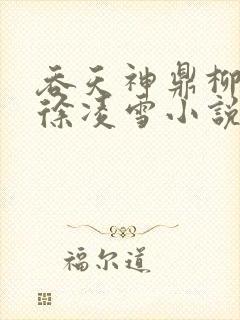 吞天神鼎柳
徐凌雪小説
福尔道